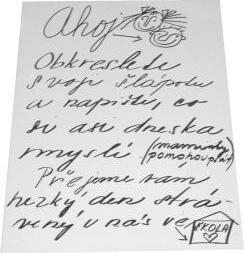 Ahoj
Obkreslete
svoji šlápotu
a napiště, co
si asi dneska
myslí (mamunky
pomohou psát)
Přejeme vam
hezký den strá-
vený u nás ve
ŠKOLA